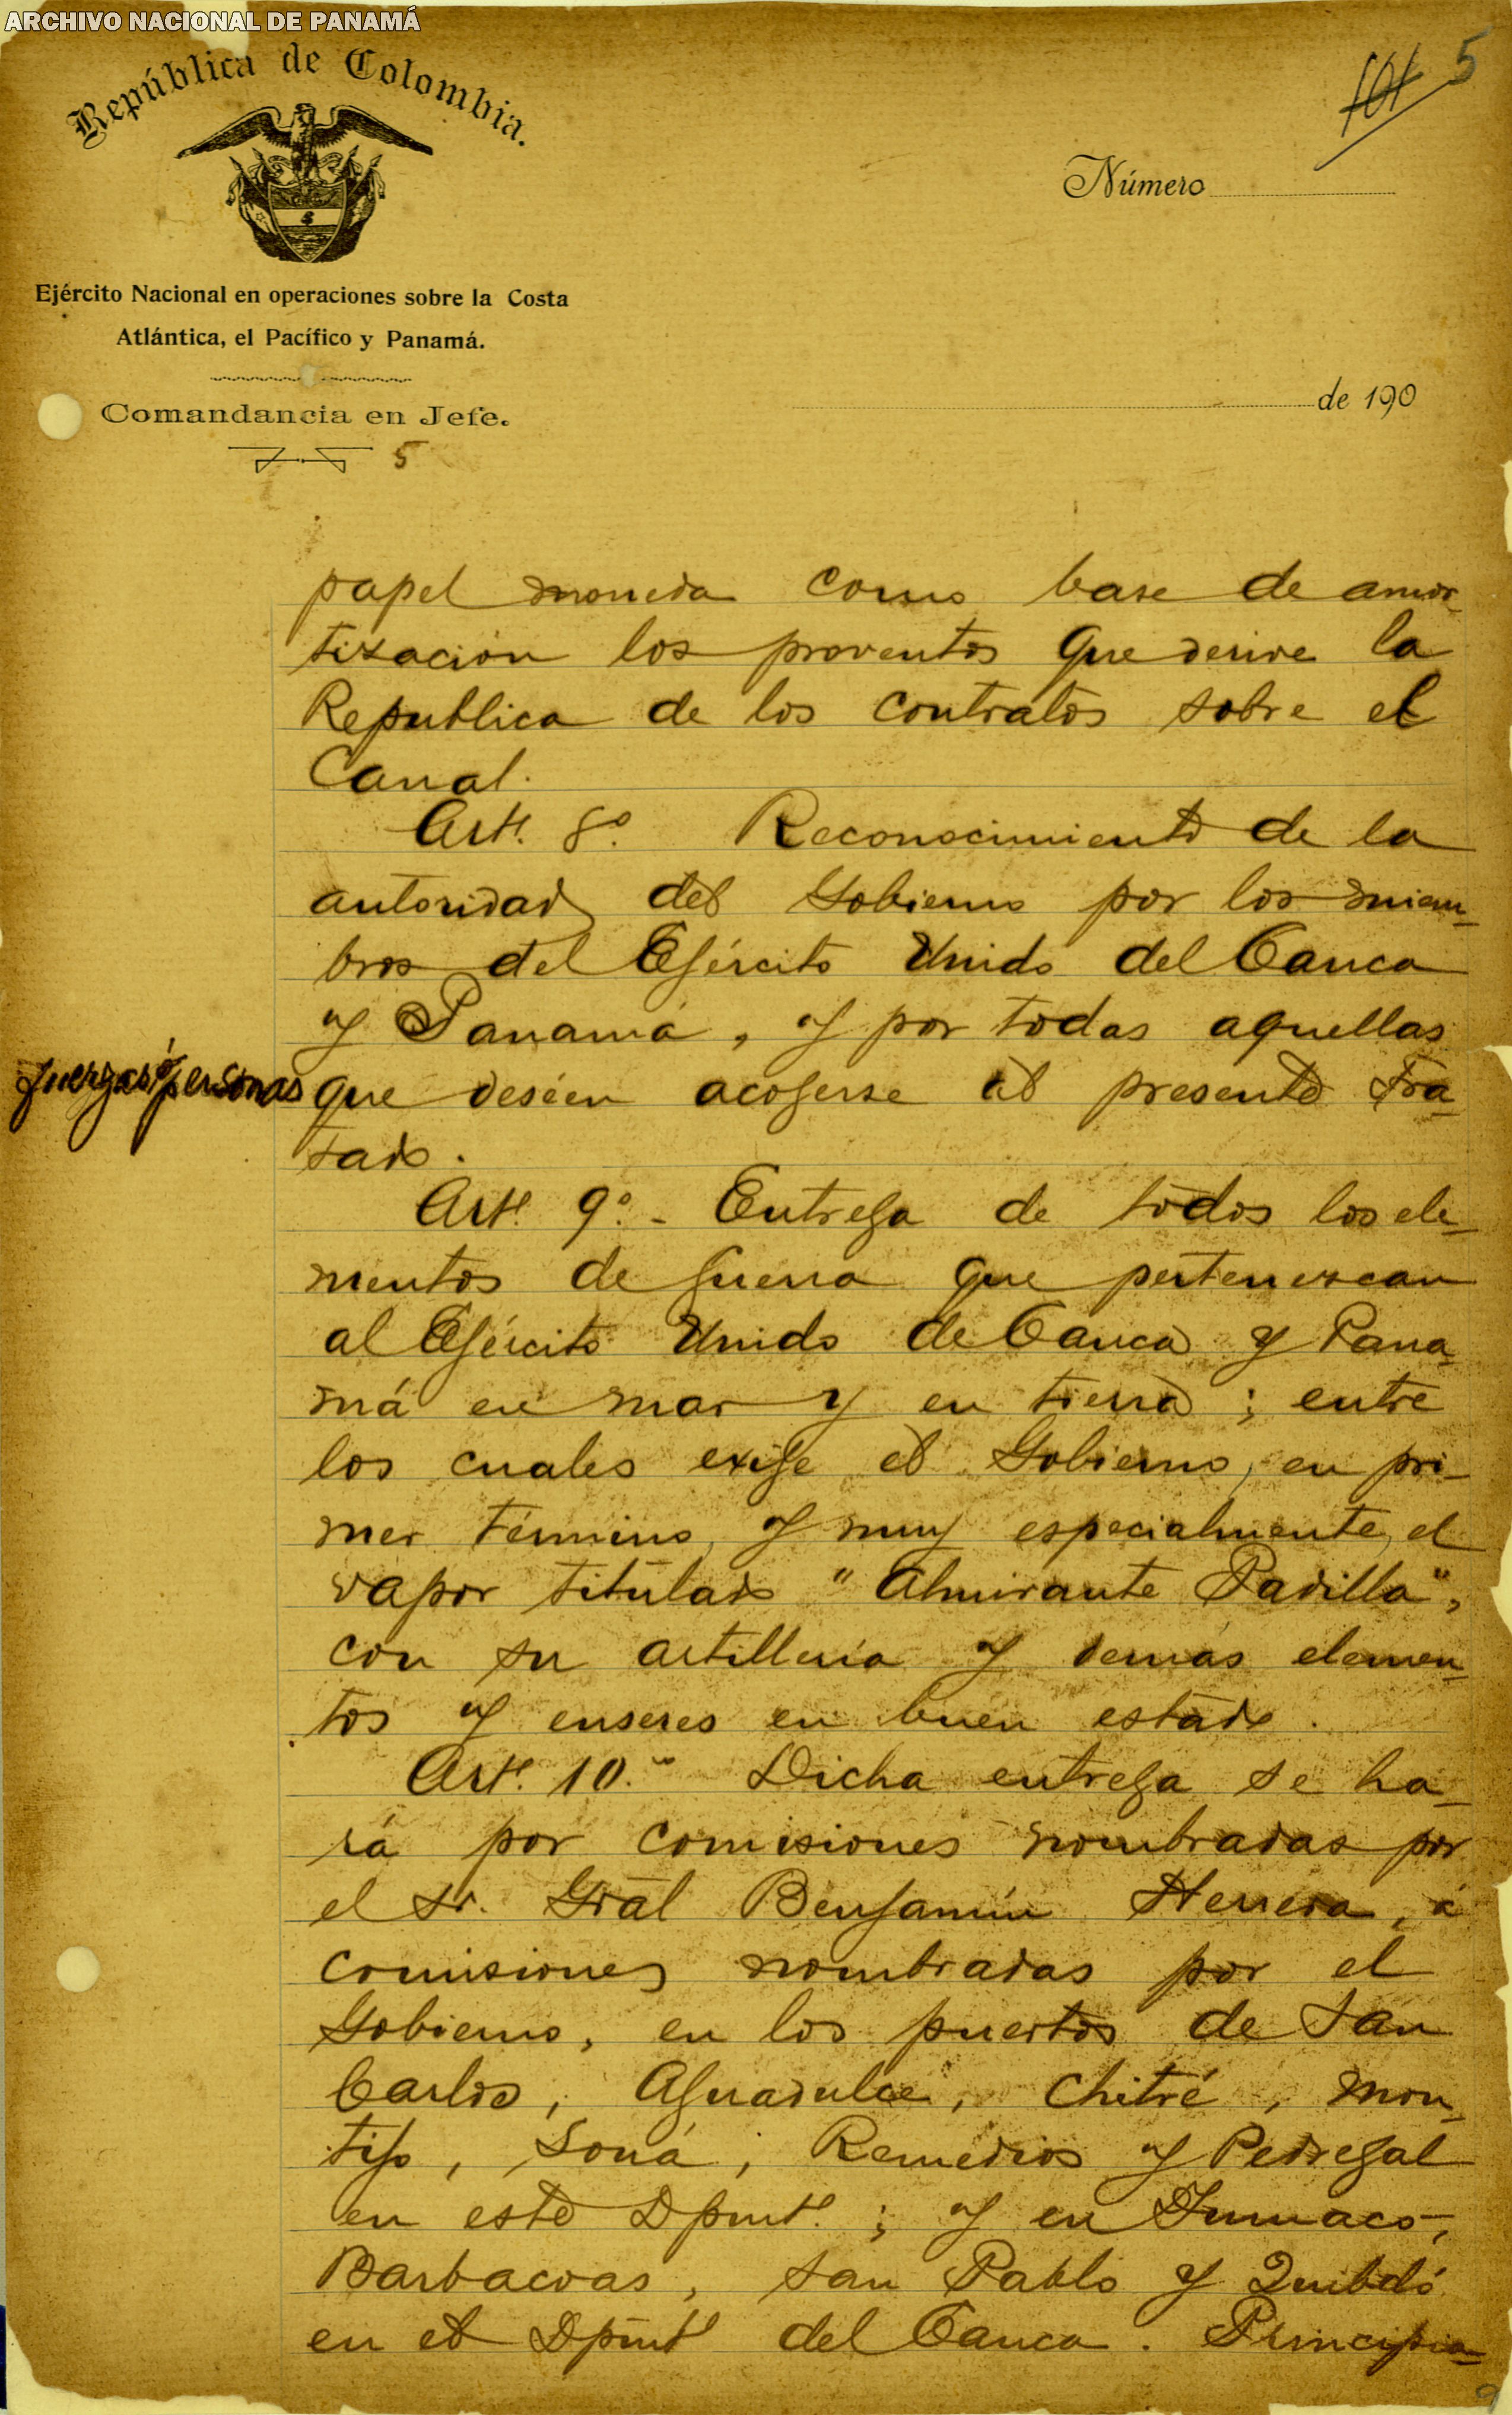 ARCHIVO NACIONAL DE PANAMÁ
República de Colombia.
5
Número
Ejército Nacional en operaciones sobre la Costa
Atlántica, el Pacífico y Panamá.
de 190
Comandancia en Jefe.
5
papel moneda como base de amor-
tización los proventos que derive la
Republica de los contratos sobre el
Canal.
Artº. 8º. Reconocimiento de la
autoridad del Gobierno por los miem-
bros del Ejército Unido del Cauca
y Panamá, y por todas aquellas
fuerzas ó personas que deséen acogerse al presente Tra-
tado.
Artº. 9º. - Entrega de todos los ele-
mentos de guerra que pertenezcan
al Ejército Unido de Cauca y Pana-
má en mar y en tierra; entre
los cuales exige el Gobierno, en pri-
mer término, y muy especialmente, el
vapor titulado "Almirante Padilla",
con su artillería y demás elemen-
tos y enseres en buen estado.
Artº. 10.º Dicha entrega se ha-
rá por comisiones nombradas por
el Sr. Gral Benjamín Herrera, á
comisiones nombradas por el
Gobierno, en los puertos de San
Carlos, Aguadulce, Chitré, Mon-
tijo, Soná, Remedios y Pedregal
en este Dpmtº.; y en Tumaco,
Barbacoas, San Pablo y Quibdó
en el Dpmtº del Cauca. Principia-
9